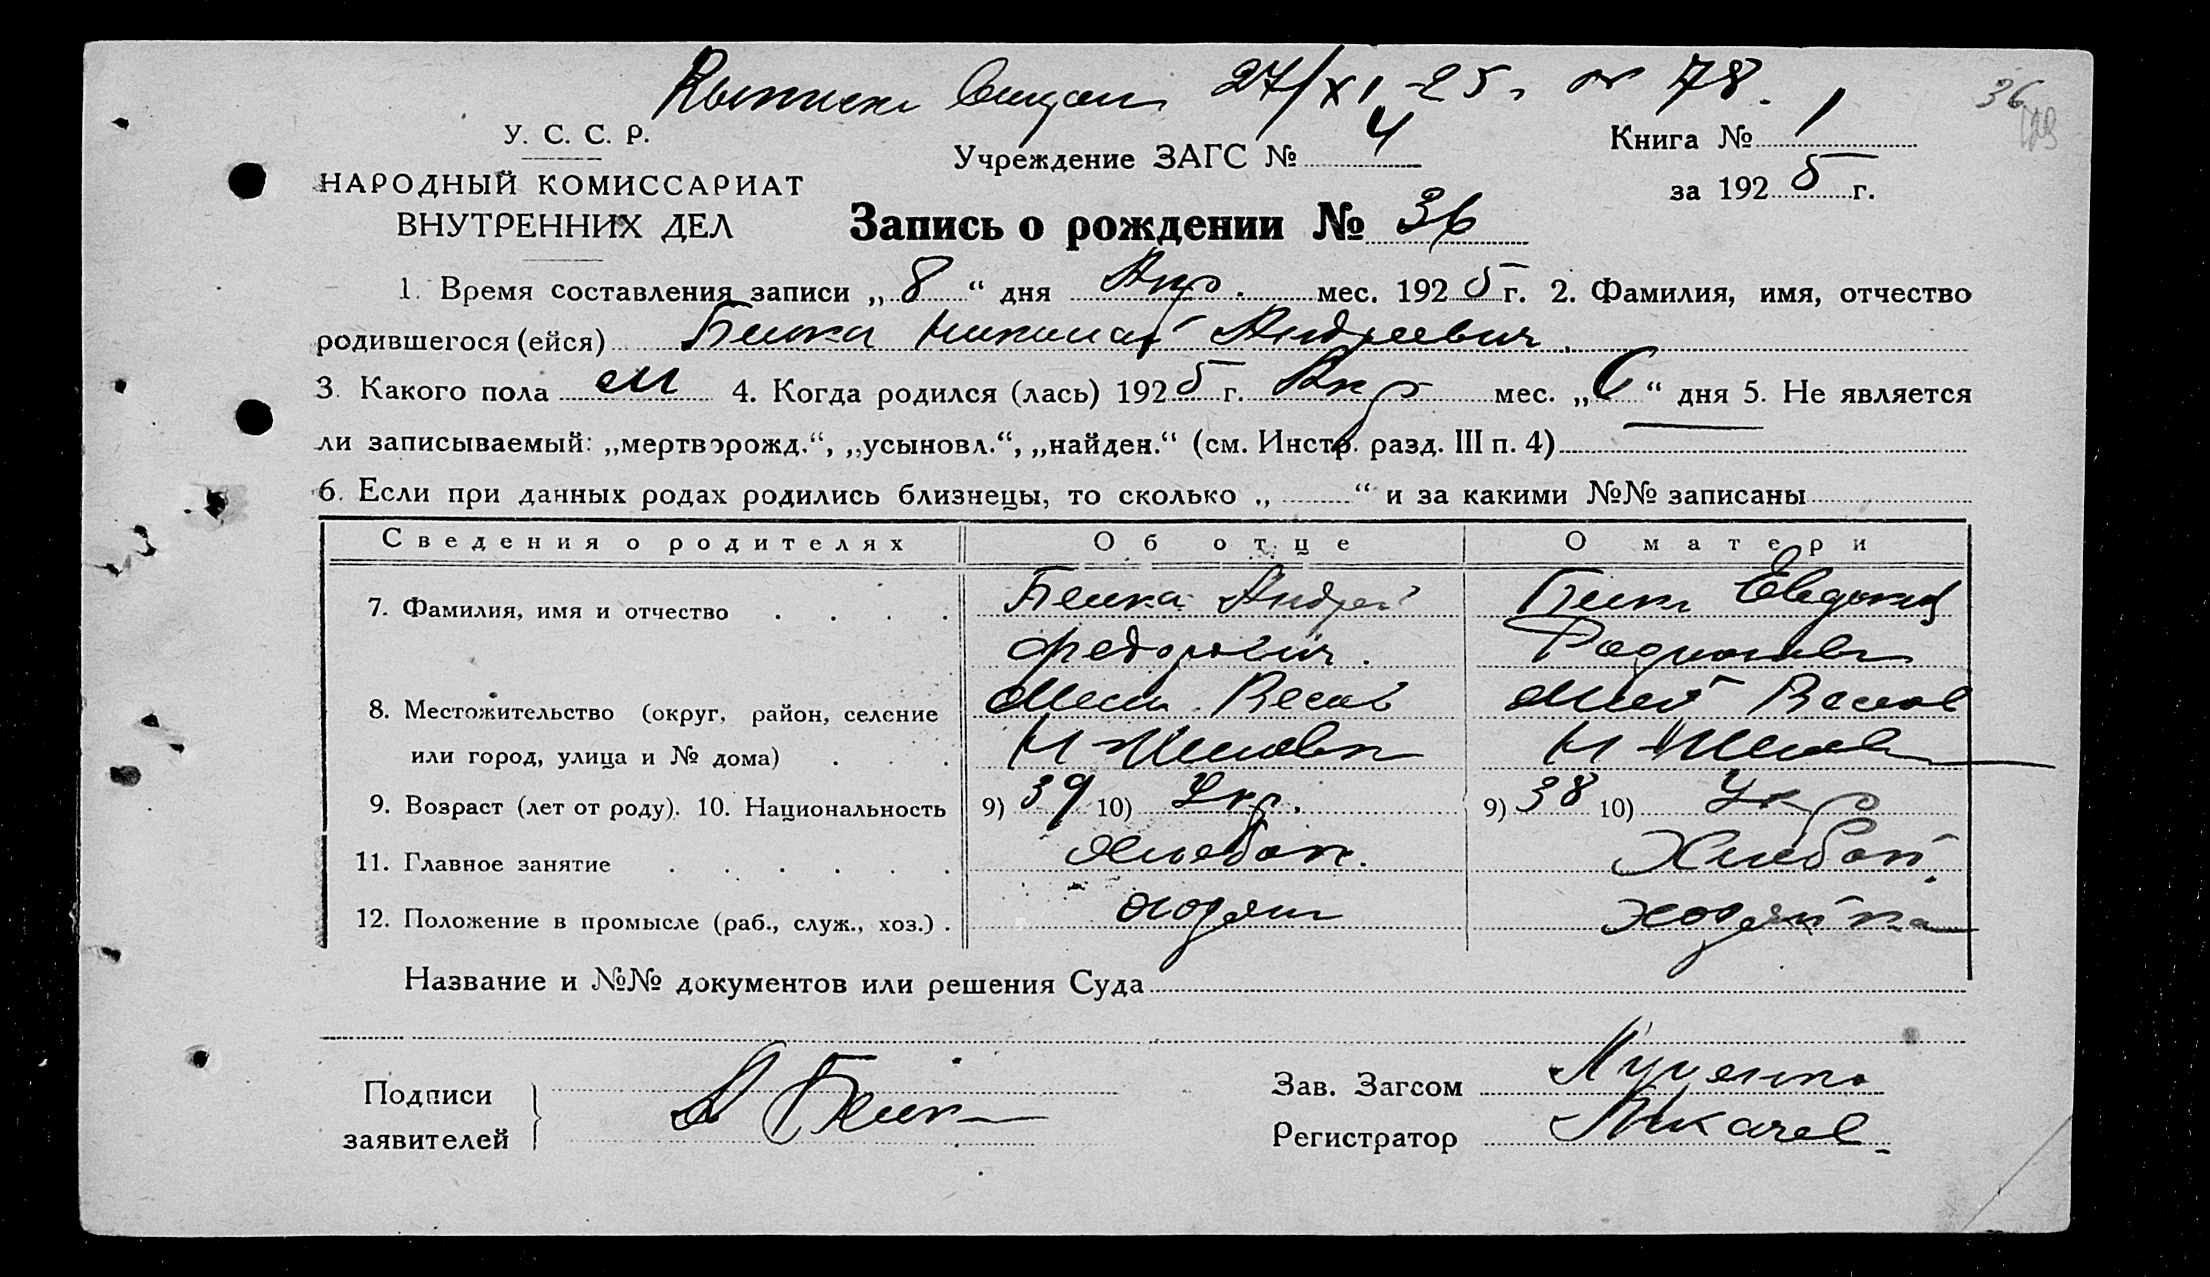 27/XI-25 г. № 78.
36
У. С. С. Р.
НАРОДНЫЙ КОМИССАРИАТ
ВНУТРЕННИХ ДЕЛ
Учреждение ЗАГС № 4
Книга № 1
за 1925 г.
Запись о рождении № 36
1. Время составления записи „8“ дня Апр. мес. 1925 г. 2. Фамилия, имя, отчество
родившегося (ейся) Николай Андреевич
3. Какого пола м 4. Когда родился (лась) 1925 г. мес. „6“ дня 5. Не является
ли записываемый: „мертворожд.“, „усыновл.“, „найден.“ (см. Инстр. разд. III п. 4)
6. Если при данных родах родились близнецы, то сколько „ “ и за какими №№ записаны
Сведения о родителях Об отце О матери
7. Фамилия, имя и отчество Андрей Евдокия
Федорович.
8. Местожительство (округ, район, селение
или город, улица и № дома)
9. Возраст (лет от роду). 10. Национальность 9) 39 10) Укр. 9) 38 10) Укр
11. Главное занятие Хлебоп. Хлебоп.
12. Положение в промысле (раб., служ., хоз.) хозяин хозяйка
Название и №№ документов или решения Суда
Подписи
заявителей
Зав. Загсом
Регистратор